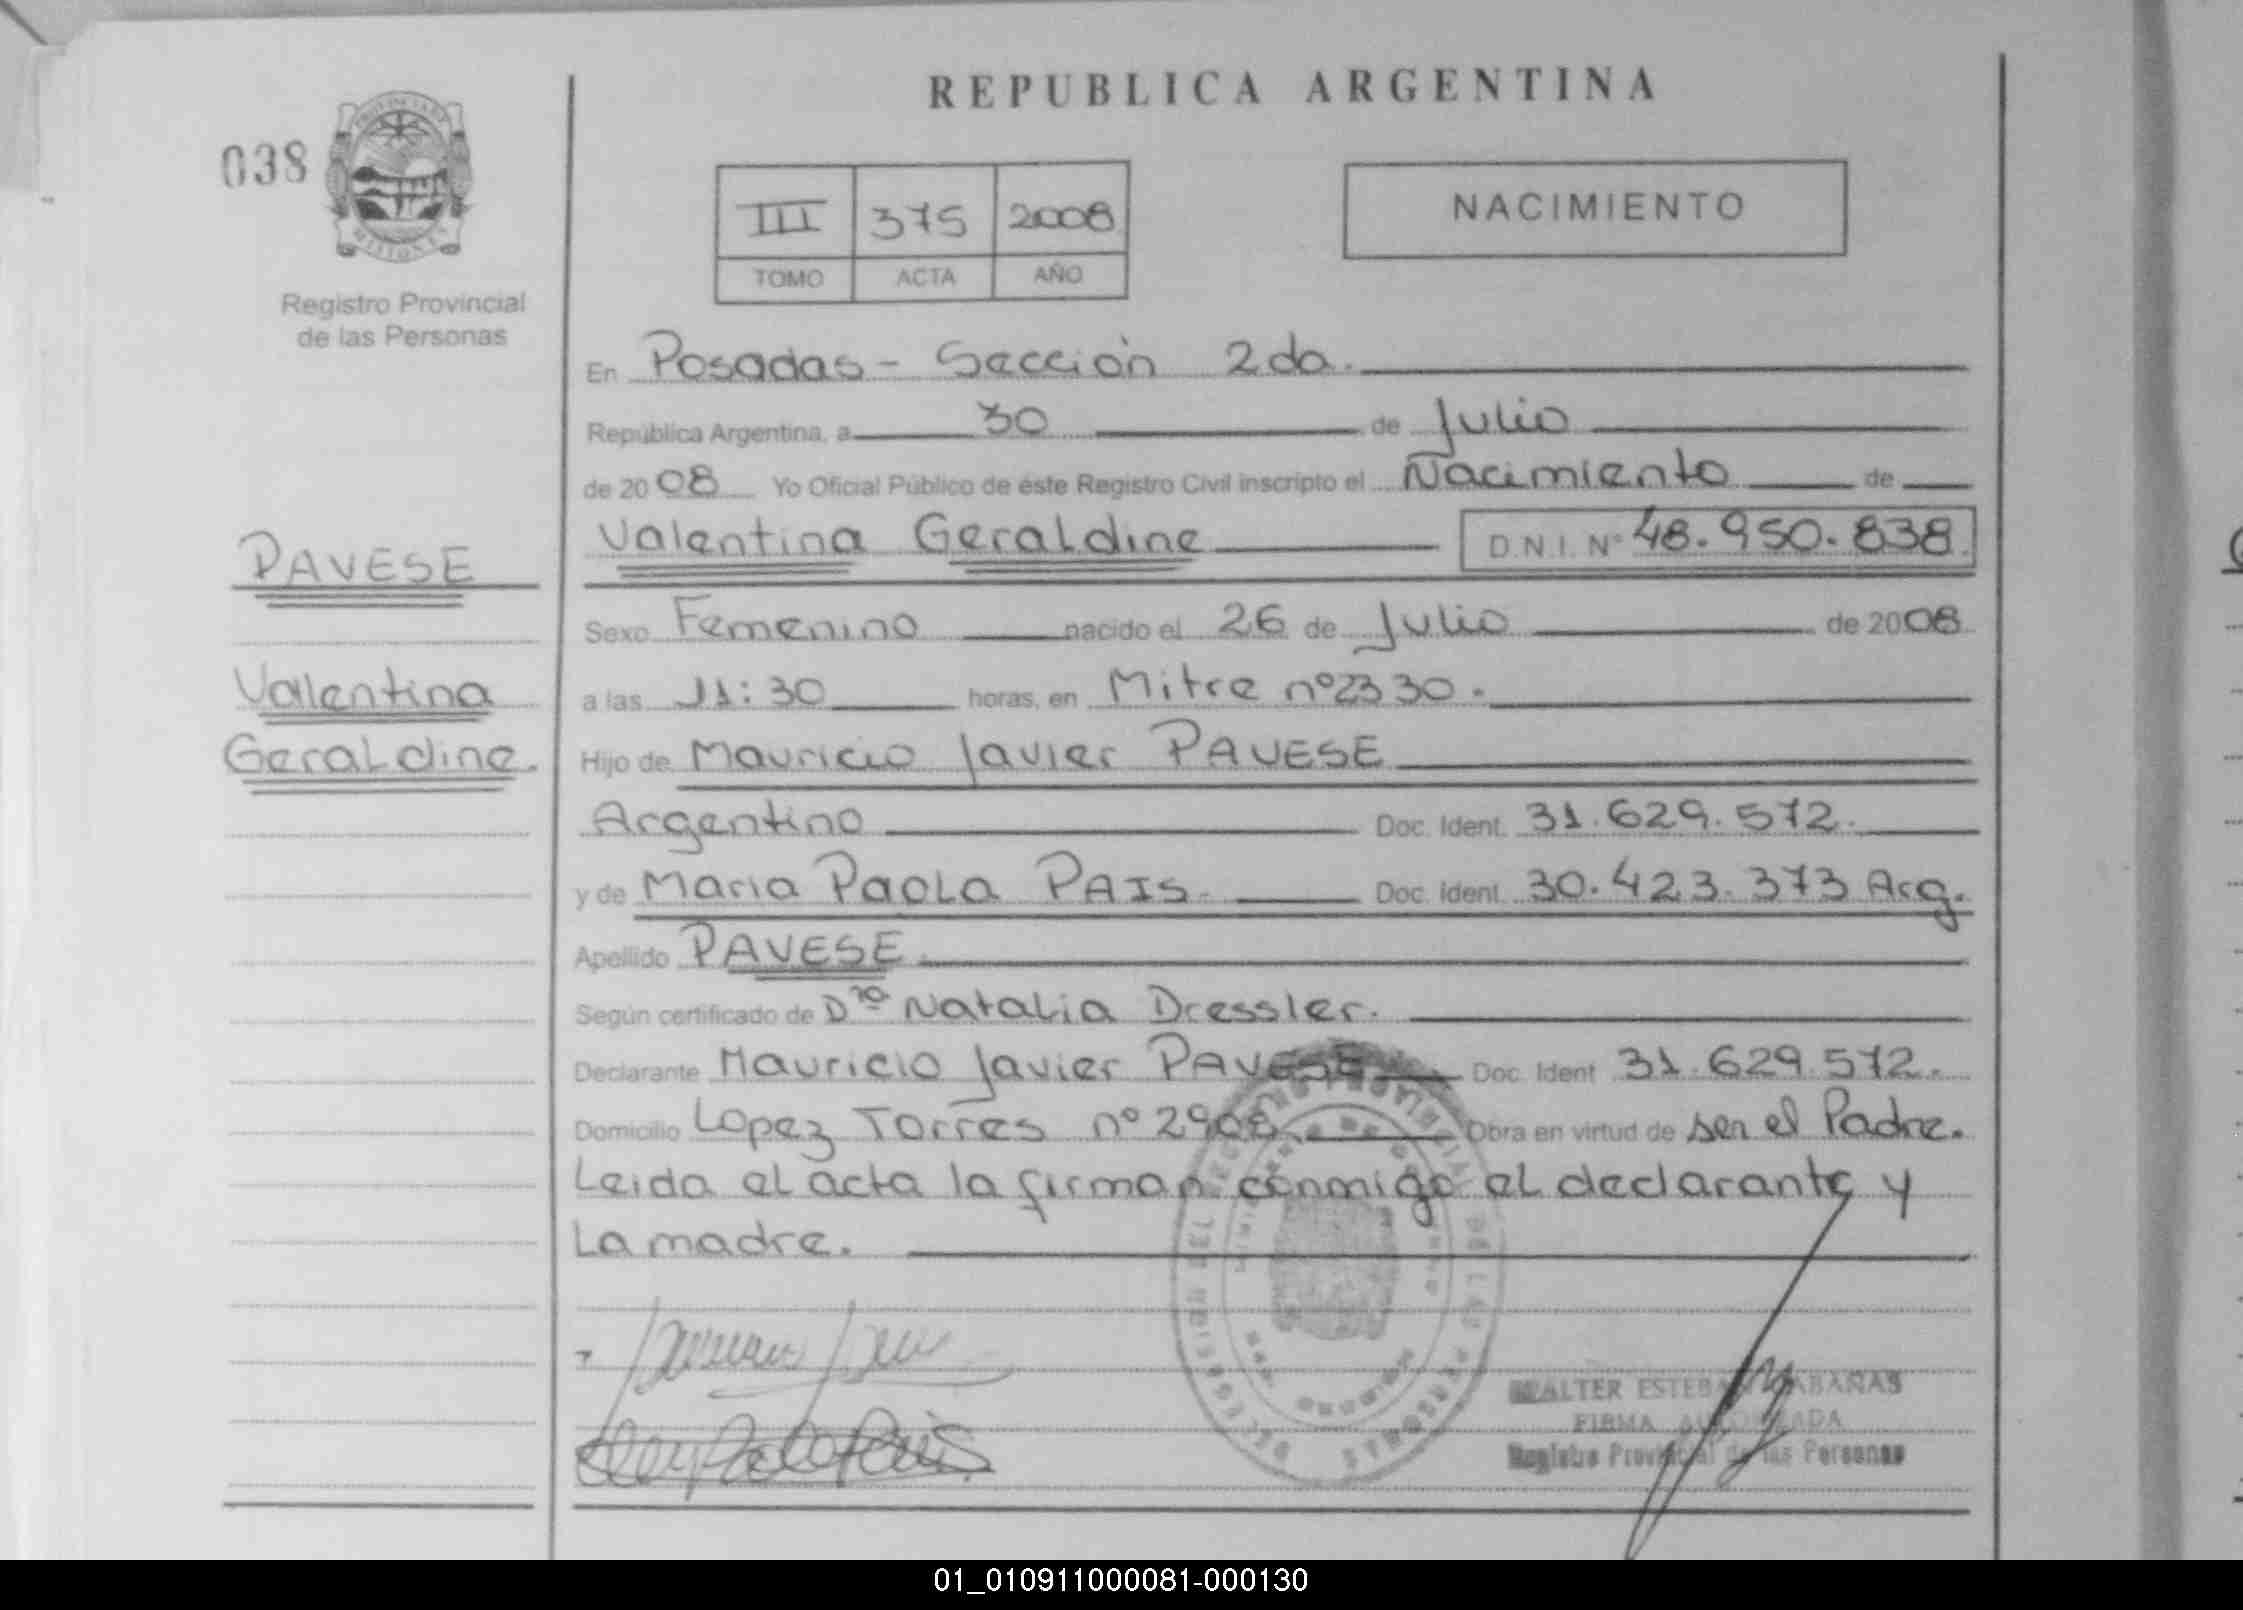 REPUBLICA ARGENTINA
038
PROVINCIA DE
MISIONES
Registro Provincial
de las Personas
III 375 2008
TOMO ACTA AÑO
NACIMIENTO
En Posadas - Sección 2da.
República Argentina, a 30 de Julio
de 2008 Yo Oficial Público de éste Registro Civil inscripto el Nacimiento de
Valentina Geraldine D.N.I. Nº 48.950.838
PAVESE
Sexo Femenino nacido el 26 de Julio de 2008
Valentina
a las 11:30 horas, en Mitre nº 2330.
Geraldine.
Hijo de Mauricio Javier PAVESE
Argentino Doc. Ident. 31.629.572.
y de Maria Paola PAIS. Doc. Ident. 30.423.373 Arg.
Apellido PAVESE.
Según certificado de Dra Natalia Dressler.
Declarante Mauricio Javier PAVESE Doc. Ident 31.629.572.
Domicilio Lopez Torres nº 2908. Obra en virtud de ser el Padre.
Leida el acta la firman conmigo el declarante y
La madre.
WALTER ESTEBAN CABAÑAS
FIRMA AUTORIZADA
Registro Provincial de las Personas
01_010911000081-000130